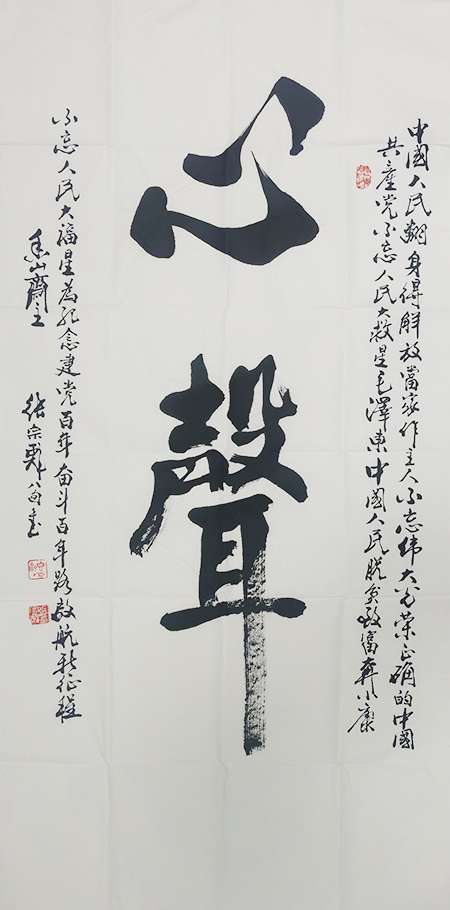 中國人民翻身得解放當家作主人不忘伟大光荣正确的中國
共產党不忘人民大救星毛澤東中國人民脱贫致富奔小康
心聲
不忘人民大福星為紀念建党百年奋斗百年路啟航新征程
香山齋主
張宗